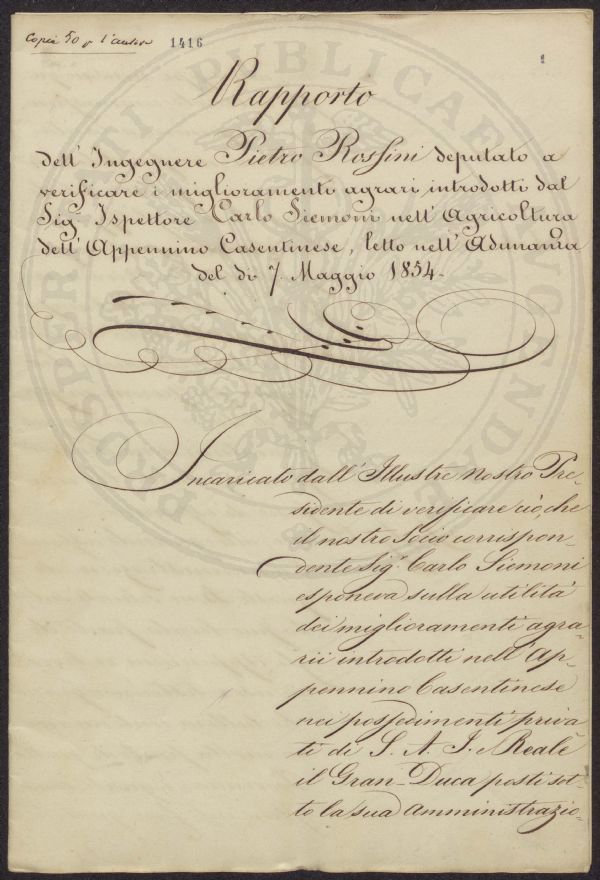 Copie 50 p l'autore 1416
1
Rapporto
dell'Ingegnere Pietro Rossini deputato a
verificare i miglioramenti agrari introdotti dal
Sig.r Ispettore Carlo Siemoni nell'Agricoltura
dell'Appennino Casentinese, letto nell'Adunanza
del dì 7. Maggio 1854.
Incaricato dall'Illustre nostro Pre-
sidente di verificare ciò, che
il nostro Socio corrispon-
dente Sig.r Carlo Siemoni
esponeva sulla utilità
dei miglioramenti agra-
rii introdotti nell'Ap-
pennino Casentinese
nei possedimenti priva
ti di S. A. I. e Reale
il Gran-Duca posti sot-
to la sua amministrazio-
PROSPERITATI PUBLICAE AUGENDAE